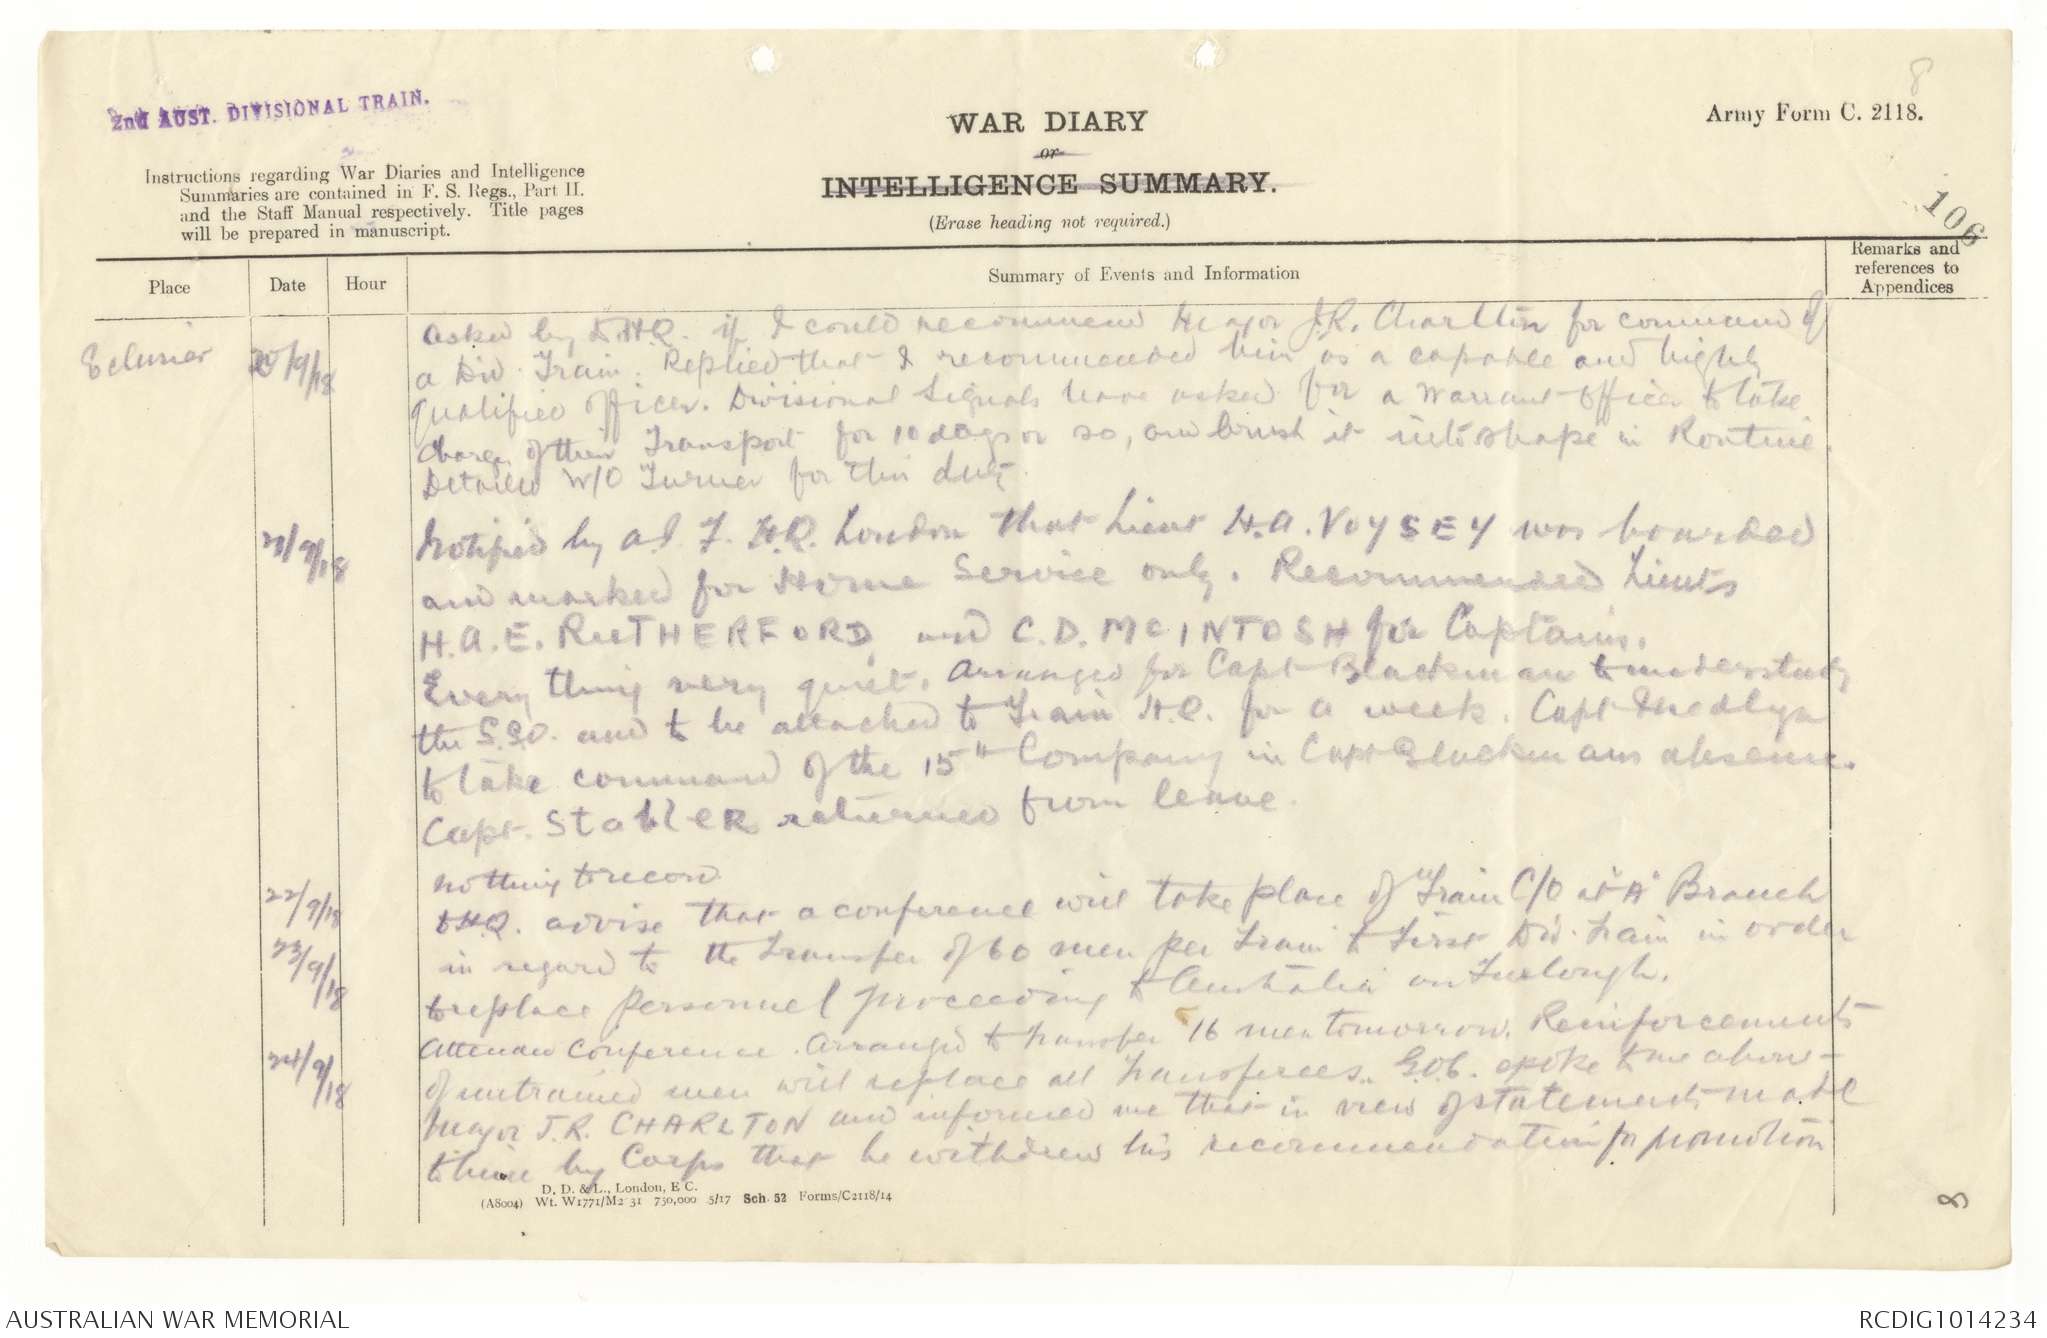 8
2nd AUST. DIVISIONAL TRAIN.
WAR DIARY
or
INTELLIGENCE SUMMARY.
(Erase heading not required.)
Army Form C. 2118.
Instructions regarding War Diaries and Intelligence
Summaries are contained in F. S. Regs., Part II.
and the Staff Manual respectively. Title pages
will be prepared in manuscript.
106
Place
Date
Hour
Summary of Events and Information
Remarks and
references to
Appendices
Eclusier 20/9/18 asked by D.H.Q. if I could recommend Major J.R. Charlton for command of
a Div. Train. Replied that I recommended him as a capable and highly
qualified officer. Divisional Signals have asked for a Warrant Officer to take
charge of their Transport for 10 days or so, and brush it into shape in Routine.
Detailed W/O Turner for this duty.
21/9/18 Notified by A.I.F. H.Q. London that Lieut H.A. VOYSEY was boarded
and marked for Home Service only. Recommended Lieuts
H.A.E. RUTHERFORD, and C.D. MCINTOSH for Captains.
Every thing very quiet. Arranged for Capt Blackman to understudy
the S.S.O. and to be attached to Train H.Q. for a week. Capt
to take command of the 15th Company in Capt Blackmans absence.
Capt. Stabler returned from leave.
22/9/18 nothing to record
23/9/18 D.H.Q. advise that a conference will take place of Train C/O at "A" Branch
in regard to the transfer of 60 men per Train to First Div. Train in order
to replace personnel proceeding to Australia on Furlough.
24/9/18 Attended Conference. Arranged to transfer 16 men tomorrow. Reinforcements
of untrained men will replace all Transferees. G.O.C. spoke to me about
Major J.R. CHARLTON and informed me that in view of statements made
to him by Corps that he withdrew his recommendation for promotion
D. D. & L., London, E C.
(A8004) Wt. W1771/M2 31 750,000 5/17 Sch. 52 Forms/C2118/14
8
AUSTRALIAN WAR MEMORIAL
RCDIG1014234